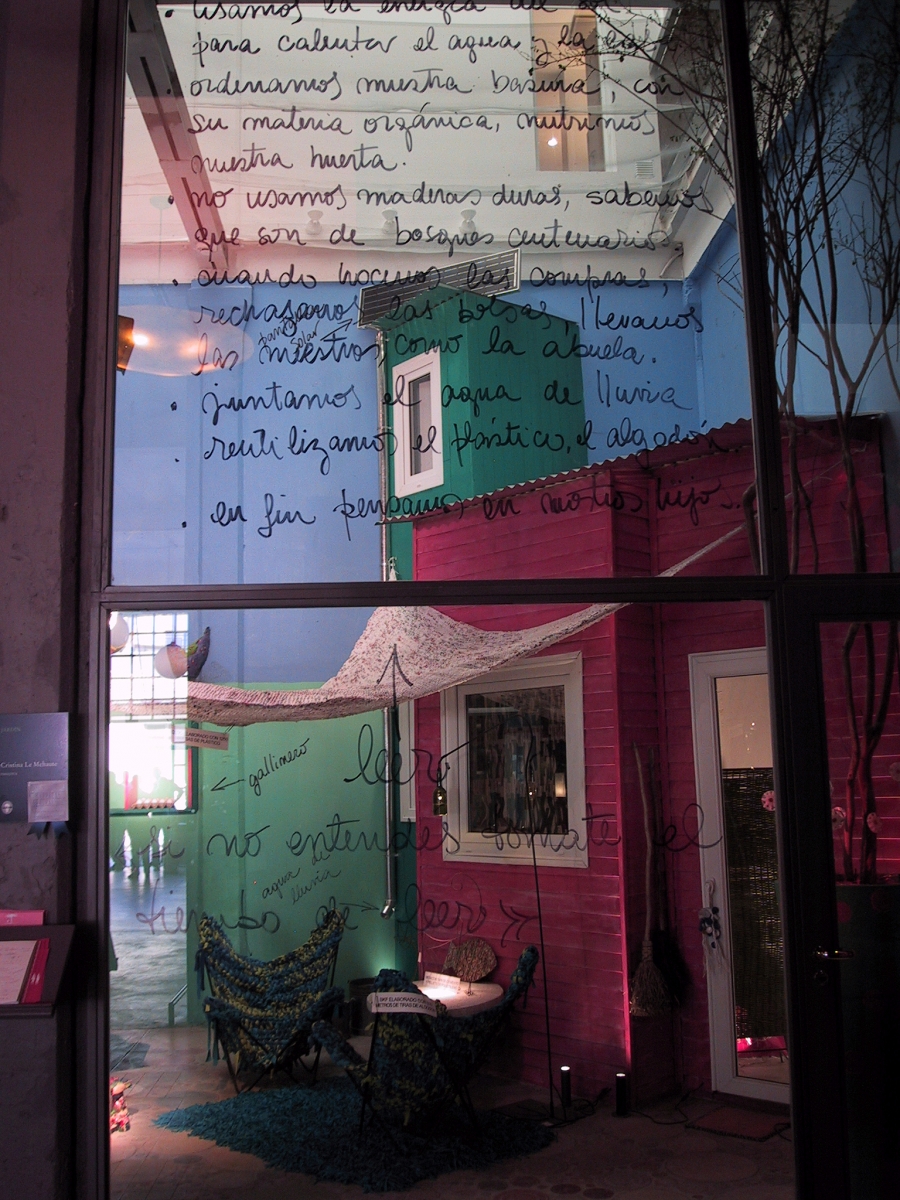 • usamos la energía del sol
para calentar el agua y la casa
• ordenamos nuestra basura, con
su materia orgánica, nutrimos
nuestra huerta.
• no usamos maderas duras, sabemos
que son de bosques centenarios.
• cuando hacemos las compras,
rechasamos las bolsas, llevamos
las nuestras, como la abuela.
panel
solar
• juntamos el agua de lluvia
• reutilizamos el plástico, el algodón
• en fin pensamos en nuestros hijos...
ELABORADO CON
DE PLÁSTICO
Cristina Le Mehaute
← gallinero
leero
si no entendes tomate el
agua de
lluvia
tiempo de leerlo